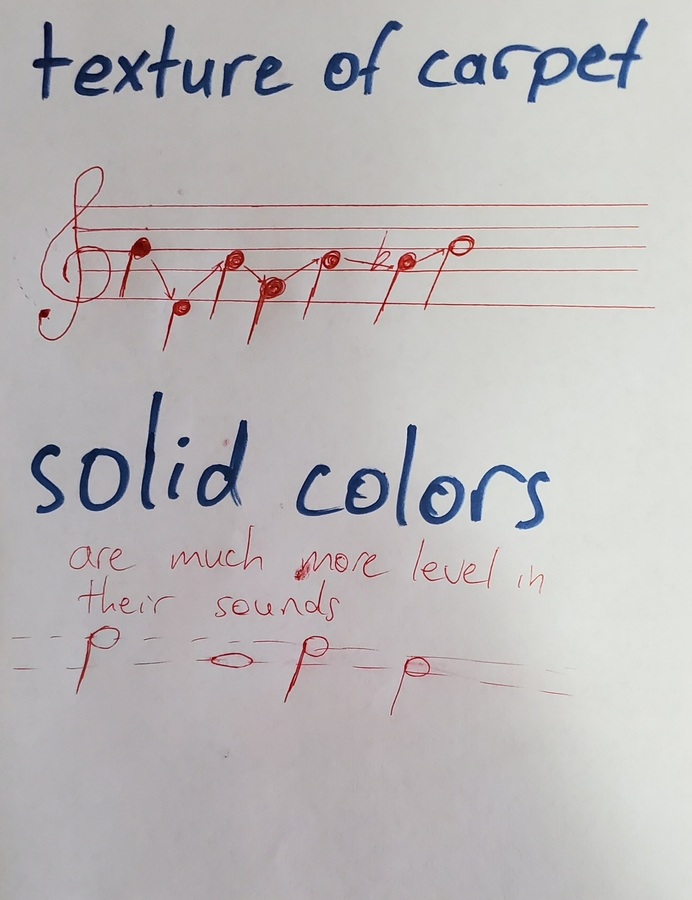 texture of carpet
solid colors
are much more level in
their sounds